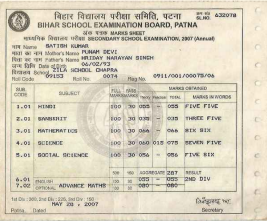 बिहार विद्यालय परीक्षा समिति, पटना
BIHAR SCHOOL EXAMINATION BOARD, PATNA
SL.NO. 632078
अंक पत्रक MARKS SHEET
माध्यमिक विद्यालय परीक्षा SECONDARY SCHOOL EXAMINATION, 2007 (Annual)
नाम Name SATISH KUMAR
Mother's Name PUNAM DEVI
Father's Name HRIDAY NARAYAN SINGH
Date of Birth 06/02/93
School ZILA SCHOOL CHAPRA
Roll Code 09153 Roll No. 0074 Reg No. 0911/001/00075/06
SUB. CODE SUBJECT FULL MARKS PASS MARKS MARKS OBTAINED
TOTAL MARKS IN WORDS
1.01 HINDI 100 30 055 055 FIVE FIVE
2.01 SANSKRIT 100 30 035 035 THREE FIVE
3.01 MATHEMATICS 100 30 066 066 SIX SIX
4.01 SCIENCE 100 30 060 015 075 SEVEN FIVE
5.01 SOCIAL SCIENCE 100 30 056 056 FIVE SIX
AGGREGATE 287 RESULT
6.01 ENGLISH 100 30 053 053 2ND DIV
7.02 OPTIONAL ADVANCE MATHS 100 080 080
MAY 28, 2007